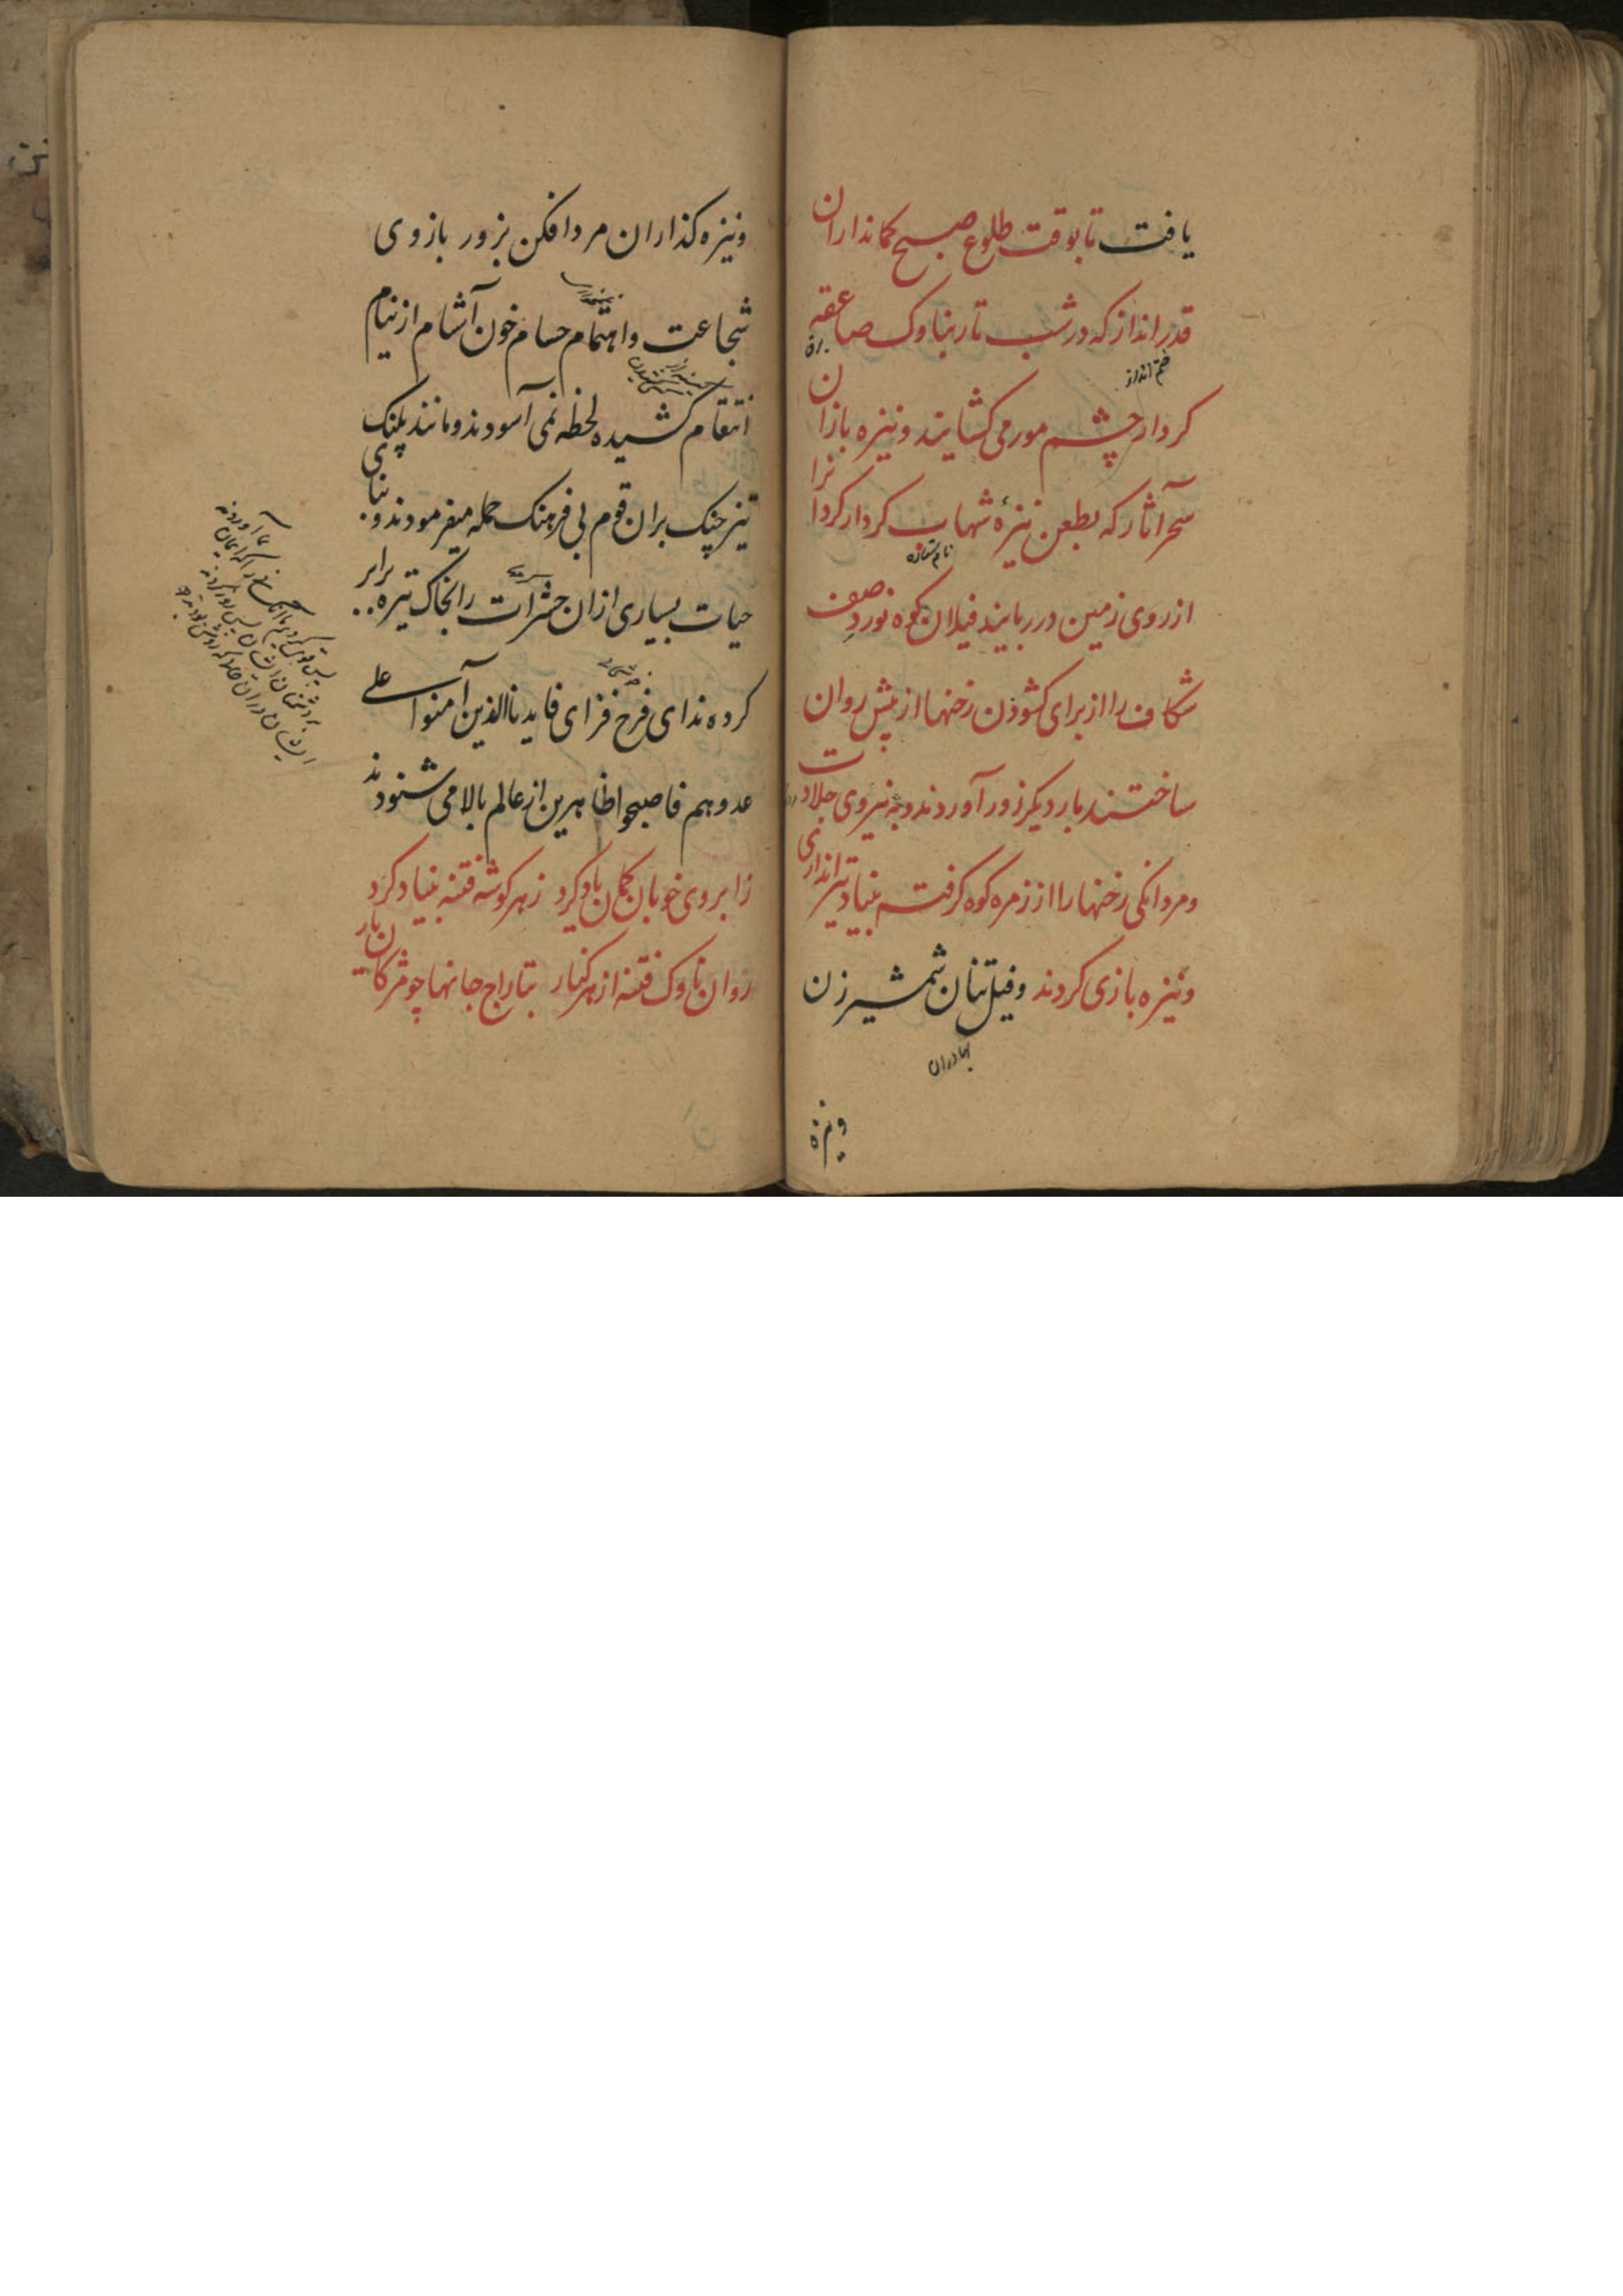 یافت تا بوقت طلوع صبح کمانداران
قدرانداز که در شب تار بناوک صاعقه
کردار چشم مور می کشایند و نیزه بازان
سحر آثار که بطعن نیزهٔ شهاب کردار کردا نرا
نام ستاره
از روی زمین در ربایند فیلان کوه نورد صف
شکاف را از برای کشودن رخنها از پیش روان
ساختند بار دیکر زور آوردند و به نیروی جلادت
و مردانکی رخنها را از زمره کوه کرفته بنیاد تیراندازی
و نیزه بازی کردند و فیل تنان شمشیر زن
بهادران
ونیزه
ونیزه کذاران مرد افکن بزور بازوی
شجاعت و اهتمام حسام خون آشام از نیام
انتقام کشیده لحظه نمی آسودند و مانند پلنک
تیز چنک بران قوم بی فرهنک حمله میفرمودند و بنای
حیات بسیاری ازان حشرات را بخاک تیره برابر
کرده ندای فرح فزای فایدنا الذین آمنوا علے
عدوهم فاصبحوا ظاهرین از عالم بالا می شنودند
ز ابروی خوبان کمان یاد کرد ز هر کوشه فتنه بنیاد کرد
روان ناوک فتنه از هر کنار بتاراج جانها چو مژکان یار